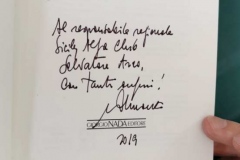 Al responsabile regionale
Sicily Alfa Club
Salvatore Ares,
Con tanti auguri!
GIORGIO NADA EDITORE
2019